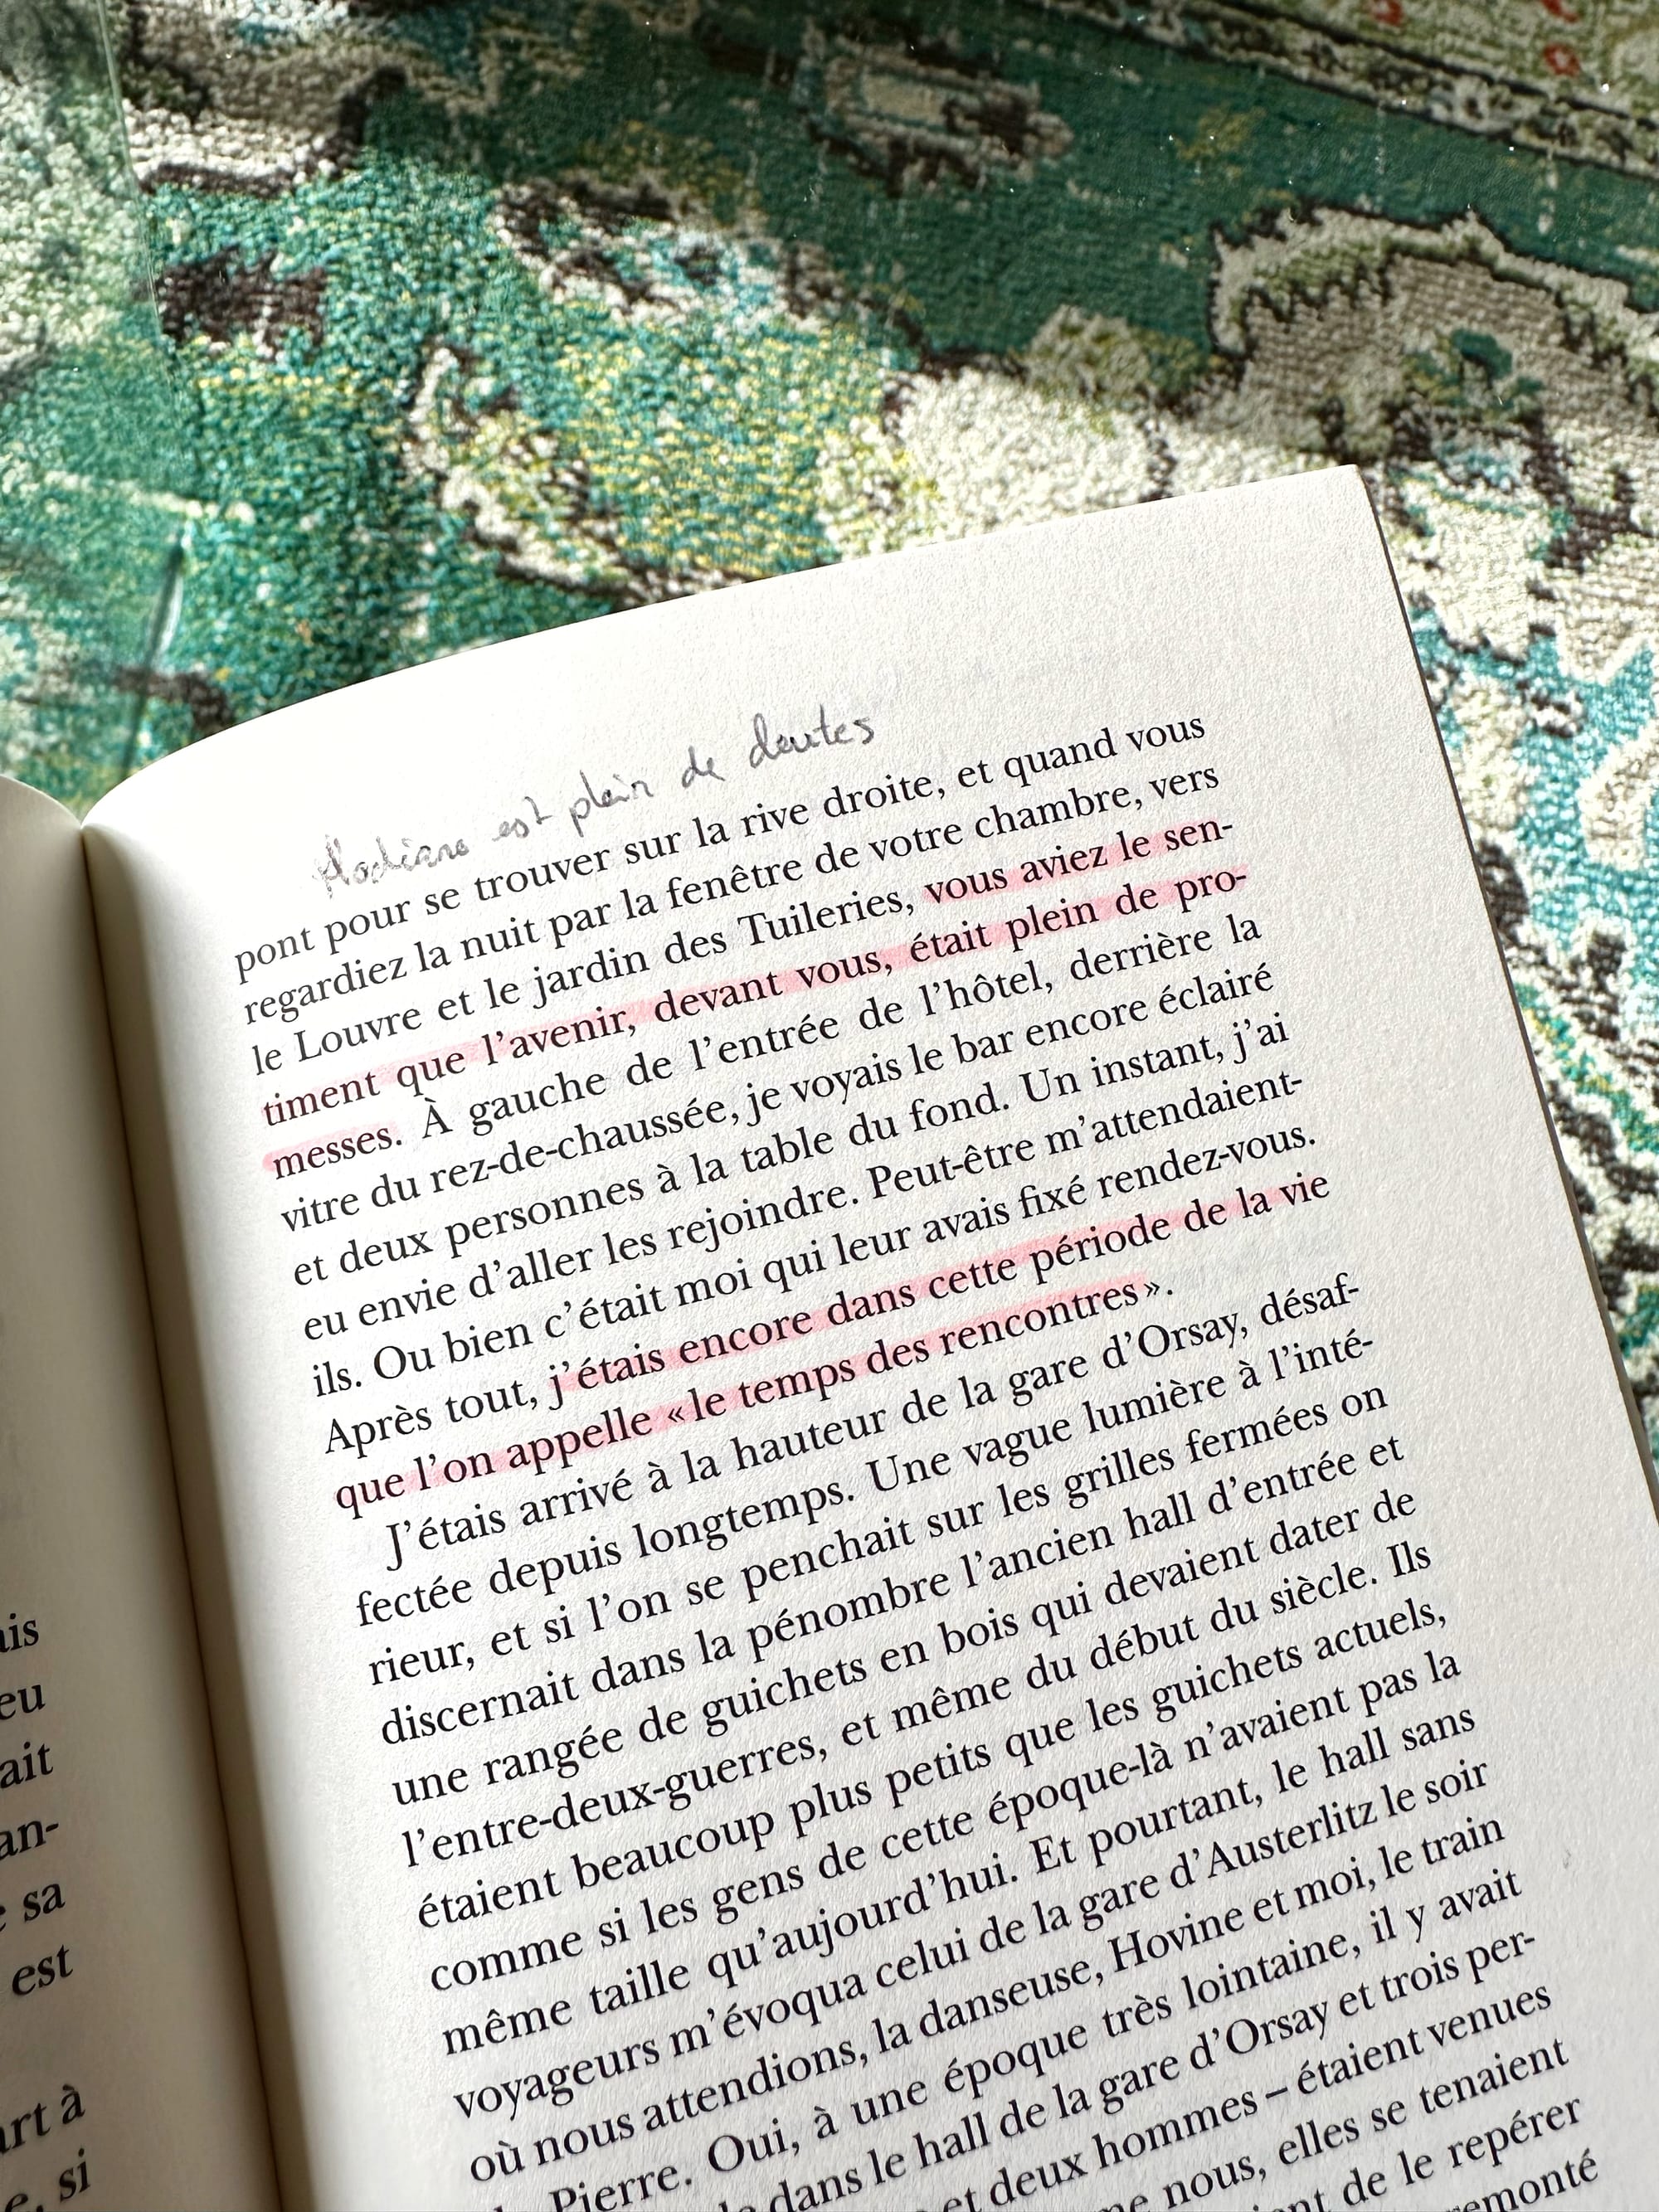 Modiano est plein de doutes
pont pour se trouver sur la rive droite, et quand vous
regardiez la nuit par la fenêtre de votre chambre, vers
le Louvre et le jardin des Tuileries, vous aviez le sen-
timent que l’avenir, devant vous, était plein de pro-
messes. À gauche de l’entrée de l’hôtel, derrière la
vitre du rez-de-chaussée, je voyais le bar encore éclairé
et deux personnes à la table du fond. Un instant, j’ai
eu envie d’aller les rejoindre. Peut-être m’attendaient-
ils. Ou bien c’était moi qui leur avais fixé rendez-vous.
Après tout, j’étais encore dans cette période de la vie
que l’on appelle « le temps des rencontres ».
J’étais arrivé à la hauteur de la gare d’Orsay, désaf-
fectée depuis longtemps. Une vague lumière à l’inté-
rieur, et si l’on se penchait sur les grilles fermées on
discernait dans la pénombre l’ancien hall d’entrée et
une rangée de guichets en bois qui devaient dater de
l’entre-deux-guerres, et même du début du siècle. Ils
étaient beaucoup plus petits que les guichets actuels,
comme si les gens de cette époque-là n’avaient pas la
même taille qu’aujourd’hui. Et pourtant, le hall sans
voyageurs m’évoqua celui de la gare d’Austerlitz le soir
où nous attendions, la danseuse, Hovine et moi, le train
Pierre. Oui, à une époque très lointaine, il y avait
dans le hall de la gare d’Orsay et trois per-
et deux hommes – étaient venues
nous, elles se tenaient
de le repérer
ait
an-
sa
est
à
si